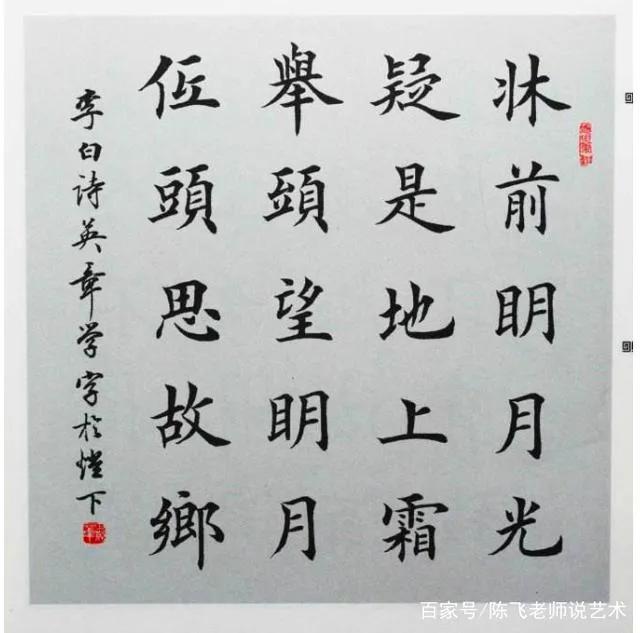 牀前明月光
疑是地上霜
舉頭望明月
低頭思故鄉
李白詩英章学字於燈下
百家号/陈飞老师说艺术